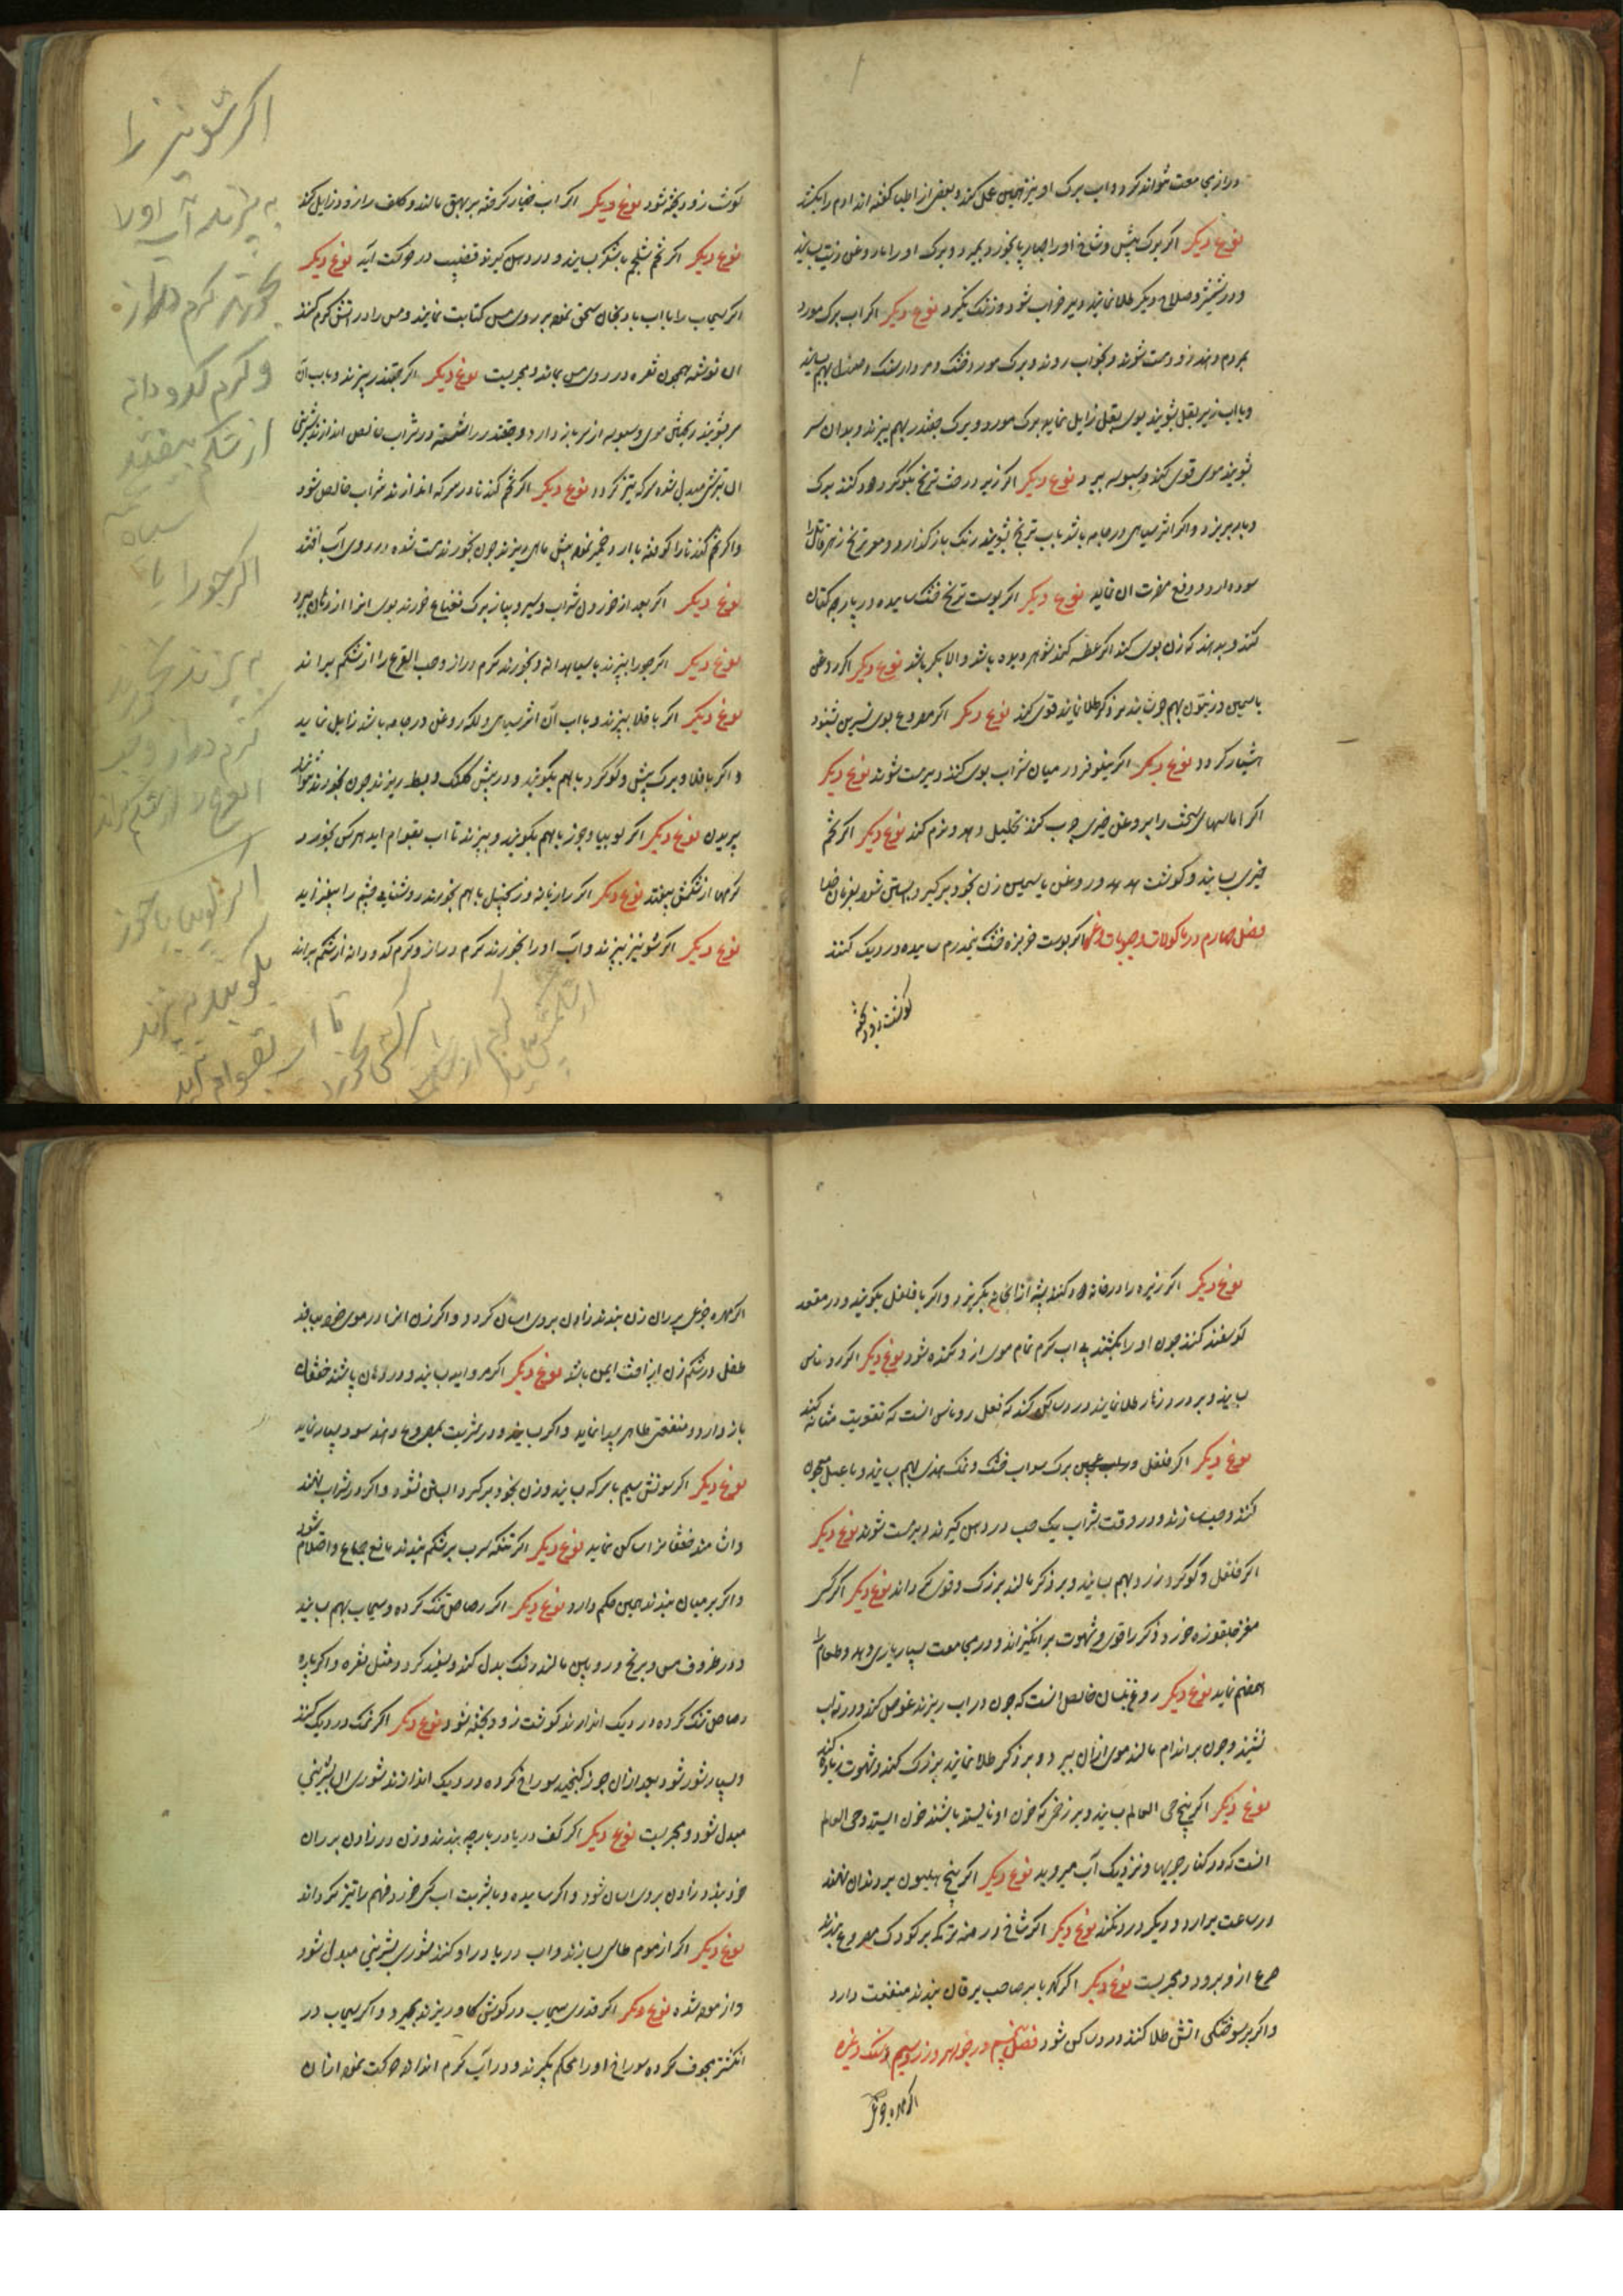 درازی مجامعت نتواند کرد و آب برک او نیز همین عمل کند و بعضی از اطبا کفته اند آدم را بکشد
نوع دیکر اکر برک بیش و شاخ او را چهارپا بخورد بمیرد و برک او را با روغن زیت بسایند
و در شمشیر و سلاح دیکر طلا نمایند دیر خراب شود و زنک نکیرد نوع دیکر اکر آب برک مورد
بمردم دهند زود مست شوند و بخواب روند و برک مورد خشک و مردارسنک و صندل بهم بسایند
و با آب زیر بغل بشویند بوی بغل زایل نماید برک مورد و برک چغندر بهم بپزند و بدان سر
بشویند موی قوی کند و سبوسه ببرد نوع دیکر اکر زیر درخت ترنج بکوکرد دود کنند برک
و بار بریزد و اکر اثر سیاهی در جامه باشد بآب ترنج بشویند رنک باز کذارد و مغز ترنج زهر قاتل را
سود دارد و دفع مضرت آن نماید نوع دیکر اکر پوست ترنج خشک ساییده در پارچه کتان
کنند و بدهند که زن بوی کند اکر عطسه کند شوهر دیده باشد والا بکر باشد نوع دیکر اکر روغن
یاسمین و زیتون بهم جوشانند بر ذکر طلا نمایند قوی کند نوع دیکر اکر مصروع بوی نسرین بشنود
هشیار کردد نوع دیکر اکر نیلوفر در میان شراب بوی کنند دیر مست شوند نوع دیکر
اکر آماسهای سخت را بروغن خیری چرب کنند تحلیل دهد و نرم کند نوع دیکر اکر تخم
خیری بسایند و کوشت هدهد و روغن یاسمین زن بخود برکیرد آبستن شود بفرمان خدا
فصل چهارم در ماکولات و حبوبات و غیره اکر پوست خربزه خشک نیمدرم ساییده در دیک کنند
کوشت زود پخته
کوشت زود پخته شود نوع دیکر اکر آب خیار کرفته بر بهق مالند و کلف را زود زایل کند
نوع دیکر اکر تخم شلجم با شکر بسایند و در دهن کیرند قضیب در حرکت آید نوع دیکر
اکر سیماب را با آب بادنجان سحق نموده بر روی مس کتابت نمایند و مس را در آتش کرم کنند
آن نوشته همچون نقره در روی مس بماند و مجربست نوع دیکر اکر چغندر بپزند و بآب آن
سر بشویند ریختن موی و سبوسه از سر باز دارد و چغندر را شسته در شراب خالص اندازند شیرینی
آن بترشی مبدل شده سرکه تیز کردد نوع دیکر اکر تخم کندنا در سرکه اندازند شراب خالص شود
و اکر تخم کندنا را کوفته با آرد خمیر نموده پیش ماهی ریزند چون بخورند مست شده در روی آب افتند
نوع دیکر اکر بعد از خوردن شراب و سیر و پیاز برک نعناع خورند بوی آنرا از دهان ببرد
نوع دیکر اکر جو را بپزند با سیاهدانه و بخورند کرم دراز و حب القرع را از شکم براند
نوع دیکر اکر باقلا بپزند و بآب آن اثر سیاهی و لکه روغن در جامه باشد زایل نماید
و اکر باقلا و برک بیش و کوکرد باهم بکوبند و در پیش کلنک و بط ریزند چون بخورند نتوانند
پریدن نوع دیکر اکر لوبیا و جوز باهم بکوبند و بپزند تا آب بقوام آید هرکس بخورد
کرمها از شکمش بیفتد نوع دیکر اکر رازیانه و زنجبیل باهم بخورند روشنایی چشم را بیفزاید
نوع دیکر اکر شونیز بپزند و آب او را بخورند کرم دراز و کرم کدودانه از شکم براند
اکر شونیز را
به پزند آب او را
بخورند کرم دراز
و کرم کدودانه
از شکم بیفتد
سیاه
اکر جو را با
به پزند بخورند
کرم دراز و حب
القرع را از شکم براند
اکر لوبیا جوز
بکوبند به پزند
تا آب بقوام آید
هرکس بخورد
کرم از
از شکمش
نوع دیکر اکر زیره را در خانه دود کنند پشه از آنخانه بکریزد و اکر با فلفل بکوبند و در مقعد
کوسفند کنند چون او را بکشند بی آب کرم تمام موی از و کنده شود نوع دیکر اکر روناس
بسایند و بر درد زهار طلا نمایند درد ساکن کند که فعل روناس آنست که تقویت مثانه کند
نوع دیکر اکر فلفل و برک سداب خشک و نمک هندی بهم بسایند و با عسل معجون
کنند و حب سازند و در وقت شراب یک حب در دهن کیرند دیر مست شوند نوع دیکر
اکر فلفل و کوکرد زرد بهم بسایند و بر ذکر مالند بزرک و قوی کرداند نوع دیکر اکر کسی
مغز جلغوزه خورد ذکر را قوی و شهوت برانکیزاند و در مجامعت بسیار یاری دهد و طعام را
هضم نماید نوع دیکر روغن بلسان خالص آنست که چون در آب ریزند غوص کند و در ته آب
نشیند و چون بر اندام مالند موی از آن ببرد و بر ذکر طلا نمایند بزرک کند و شهوت زیاده کند
نوع دیکر اکر بیخ حی العالم بسایند و بر زخمی که خون او نایستد باشند خون ایستد و حی العالم
آنست که در کنار جویها و نزدیک آب میروید نوع دیکر اکر بیخ هلیون بر دندان نهند
در ساعت بردارد و دیکر درد نکند نوع دیکر اکر شاخ درمنه ترکی بر کودک مصروع بندند
صرع از و برود و مجربست نوع دیکر اکر کهربا بر صاحب یرقان بندند منفعت دارد
و اکر بر سوختکی آتش طلا کنند درد ساکن شود فصل پنجم در جواهر و زر و سیم و سنک و غیره
اکر مهره جزع
اکر مهره جزع بر ران زن بندند زادن بروی آسان کردد و اکر زن آنرا در موی خود بافد
طفل در شکم زن از آفت ایمن باشد نوع دیکر اکر مروارید بسایند و در دهان پاشند خفقان
باز دارد و منفعتی ظاهر پیدا نماید و اکر بسایند و در شربت بمصروع دهند سود بسیار نماید
نوع دیکر اکر سونش سیم با سرکه بسایند و زن بخود برکیرد آبستن نشود و اکر در شراب نهند
و آشامند خفقانرا ساکن نماید نوع دیکر اکر تنکه سرب بر شکم بندند مانع جماع و احتلام شود
و اکر بر میان بندند همین حکم دارد نوع دیکر اکر رصاص تنک کرده و سیماب بهم بسایند
و در ظروف مس و برنج و رویین مالند رنک بدل کند و سفید کردد مثل نقره و اکر پاره
رصاص تنک کرده در دیک اندازند کوشت زود پخته شود نوع دیکر اکر نمک در دیک کنند
و بسیار شور شود بعد از آن جوز کنجید سوراخ کرده در دیک اندازند شوری آن بشیرینی
مبدل شود و مجربست نوع دیکر اکر کف دریا در پارچه بندند و زن در زادن بر ران
خود بندد زادن بروی آسان شود و اکر ساییده و با شربت آب کسی خورد فهم را تیز کرداند
نوع دیکر اکر از موم طاسی سازند و آب دریا در او کنند شوری بشیرینی مبدل شود
و آزموده شده نوع دیکر اکر قدری سیماب در کوش کاو ریزند بمیرد و اکر سیماب در
انکشتر مجوف کرده سوراخ او را محکم بکیرند و در آب کرم اندازند حرکت نموده از آن